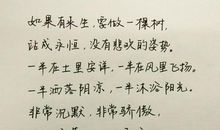 如果有来生，要做一棵树，
站成永恒，没有悲欢的姿势。
一半在土里安详，一半在风里飞扬。
一半洒落阴凉，一半沐浴阳光。
非常沉默，非常骄傲，